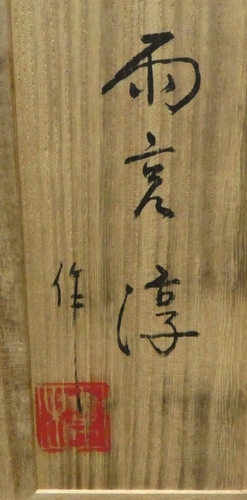 雨宮淳
作